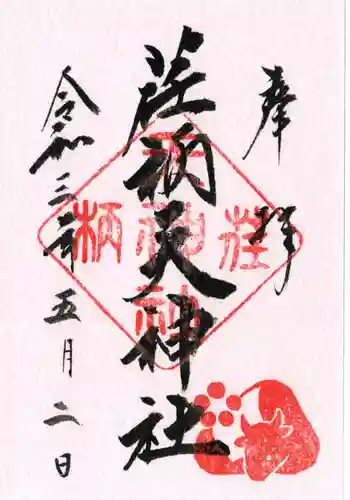 奉拝
荏柄天神社
令和三年五月二日
荏
柄
天
神
社